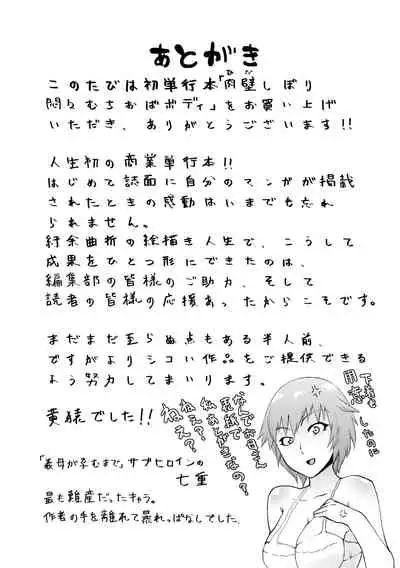 あとがき
このたびは初単行本「肉壁しぼり
悶々むちおばボディ」をお買い上げ
いただき、ありがとうございます!!
人生初の商業単行本!!
はじめて誌面に自分のマンガが掲載
されたときの感動はいまでも忘れ
られません。
紆余曲折の絵描き人生で、こうして
成果をひとつ形にできたのは、
編集部の皆様のご助力、そして
読者の皆様の応援あったからこそです。
まだまだ至らぬ点もある半人前、
ですがよりシコい作品をご提供できる
よう努力してまいります。
黄猿でした!!
「義母が孕むまで」サブヒロインの
七重
最も難産だったキャラ。
作者の手を離れて暴れっぱなしでした。
下着も
用意
したのに
なんでお母さん
表紙で
私あとがきなの?
ねえ?
ねえ?